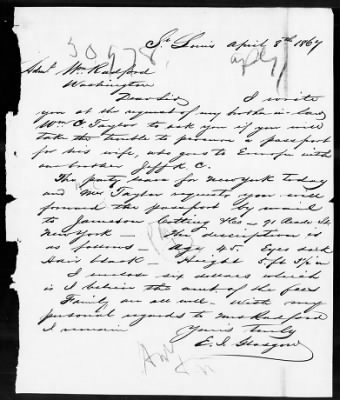 St Louis April 8th 1867
30978
Adml Wm Radford
Washington
Dear Sir I write
you at the request of my brother-in-law
Wm C Taylor to ask you if you will
take the trouble to procure a passport
for his wife, who goes to Europe with
our brother Jeff K. C.
The party leave for New York today
and Mr Taylor requests you will
forward the passport by mail
to Jameson Cotting 91 St
New York — The description is
as follows — Age 45. Eyes dark
Hair black — Height 5 ft 3½ in
I enclose six dollars which
is I believe the amt of the fees
Family are all well — With my
personal regards to Mrs Radford
I remain Yours truly
E. J. Glasgow